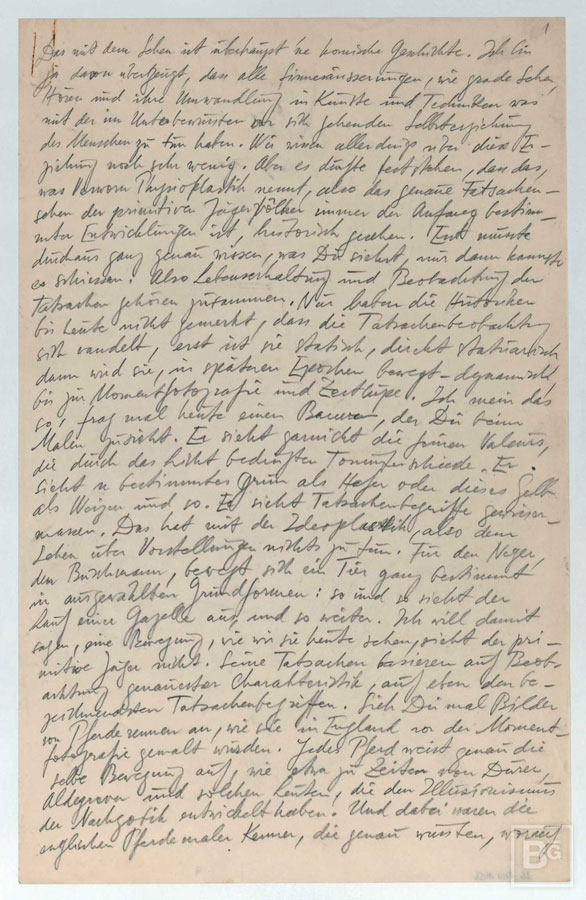 1
Das mit dem Sehen ist überhaupt 'ne komische Geschichte. Ich bin
ja davon überzeugt, dass alle Sinnesäusserungen, wie grade Sehen,
Hören und ihre Umwandlung in Künste und Techniken was
mit der im Unterbewussten vor sich gehenden Selbsterziehung
des Menschen zu tun haben. Wir wissen allerdings über diese Er-
ziehung noch sehr wenig. Aber es dürfte feststehen, dass das,
was Verworn Physioplastik nennt, also das genaue Tatsachen-
sehen der primitiven Jägervölker immer der Anfang bestimm-
ter Entwicklungen ist, historisch gesehen. Erst musste
durchaus ganz genau wissen, was Du siehst, nur dann kannste
es schiessen. Also Lebenserhaltung und Beobachtung der
Tatsachen gehören zusammen. Nur haben die Historiker
bis heute nicht gemerkt, dass die Tatsachenbeobachtung
sich wandelt, erst ist sie statisch, direkt statuarisch
dann wird sie, in späteren Epochen bewegt-dynamisch,
bis zur Momentfotografie und Zeitlupe. Ich mein das
so, frag mal heute einen Bauern, der Dir beim
Malen zusieht. Er sieht garnicht die feinen Valeurs,
die durch das Licht bedingten Tonunterschiede. Er
sieht n bestimmtes Grün als Hafer oder dieses Gelb
als Weizen und so. Er sieht Tatsachenbegriffe gewisser-
massen. Das hat mit der Ideoplastik, also dem
Sehen über Vorstellungen nichts zu tun. Für den Neger,
den Buschmann, bewegt sich ein Tier ganz bestimmt
in ausgewählten Grundformen: so und so sieht der
Lauf einer Gazelle aus und so weiter. Ich will damit
sagen, eine Bewegung, wie wir sie heute sehen, sieht der pri-
mitive Jäger nicht. Seine Tatsachen basieren auf Beob-
achtung genauester Charakteristik, auf eben den be-
zeichnendsten Tatsachenbegriffen. Sieh Dir mal Bilder
von Pferderennen an, wie sie in England vor der Moment-
fotografie gemalt wurden. Jedes Pferd weist genau die-
selbe Bewegung auf, wie etwa zu Zeiten von Dürer,
Aldegrever und solchen Leuten, die den Illusionismus
der Nachgotik entwickelt haben. Und dabei waren die
englischen Pferdemaler Kenner, die genau wussten, worauf
BG